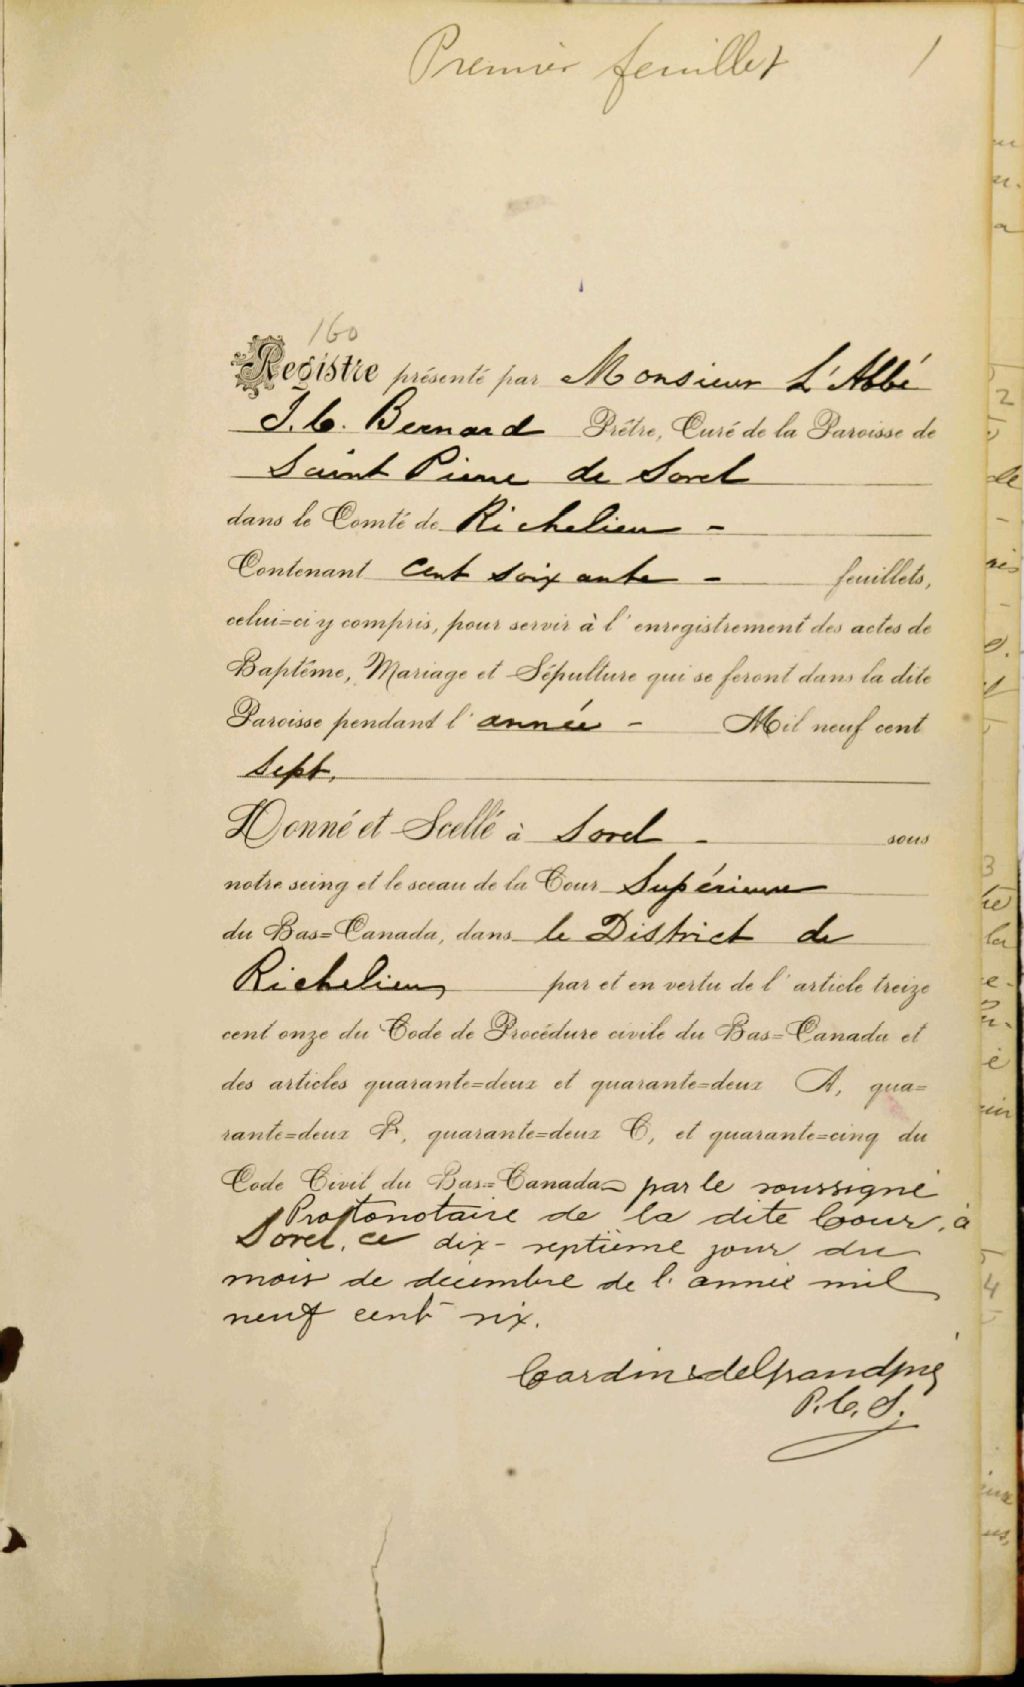 Premier feuillet 1
160
Registre présenté par Monsieur L'Abbé
J. C. Bernard Prêtre, Curé de la Paroisse de
Saint Pierre de Sorel
dans le Comté de Richelieu -
Contenant cent soixante - feuillets,
celui=ci y compris, pour servir à l'enregistrement des actes de
Baptême, Mariage et Sépulture qui se feront dans la dite
Paroisse pendant l'année - Mil neuf cent
Sept.
Donné et Scellé à Sorel - sous
notre seing et le sceau de la Cour Supérieure
du Bas=Canada, dans le District de
Richelieu, par et en vertu de l'article treize
cent onze du Code de Procédure civile du Bas=Canada et
des articles quarante=deux et quarante=deux A, qua=
rante=deux B, quarante=deux C, et quarante=cinq du
Code Civil du Bas=Canada par le soussigné
Protonotaire de la dite Cour, à
Sorel, ce dix-septième jour du
mois de décembre de l'année mil
neuf cent six.
Cardin & deGrandpré
P. C. S.